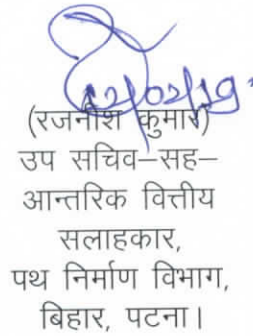 (रजनीश कुमार)
उप सचिव–सह–
आन्तरिक वित्तीय
सलाहकार,
पथ निर्माण विभाग,
बिहार, पटना।